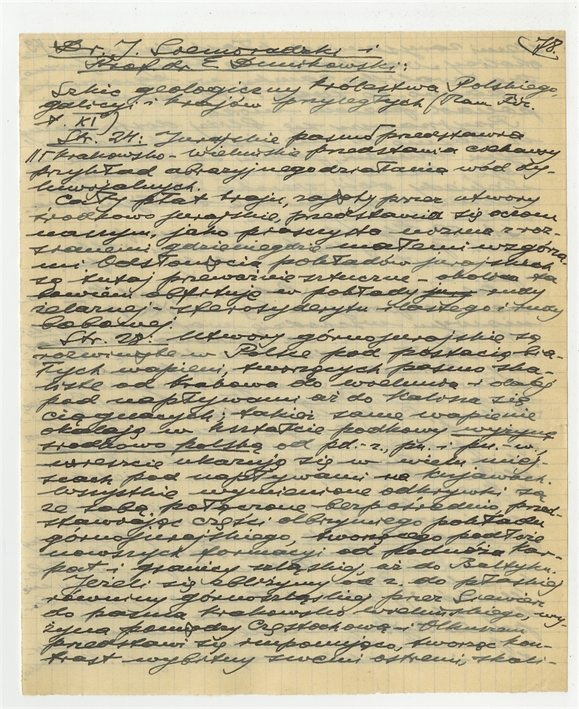 78.
Dr. J. Siemiradzki i
Prof. dr. E. Dunikowski:
Szkic geologiczny królestwa Polskiego,
galicji i krajów przyległych (Pam. Fiz.
t. XI)
Str. 24: Jurajskie pasmo przedstawia
krakowsko-wieluńskie przedstawia ciekawy
przykład abrazyjnego działania wód dy-
luwialnych.
Cały płat kraju, zajęty przez utwory
środkowo jurajskie, przedstawia się oczom
naszym, jako płaszczyzna z roz-
sianemi gdzieniegdzie małemi wzgórza-
mi. Odsłonięcia pokładów jurajskich
są tutaj przeważnie sztuczne - okolica ta
bowiem obfituje w pokłady rudy
żelaznej - sferosyderytu ilastego i rudy
bobowej.
Str. 28: Utwory górnojurajskie są
rozwinięte w Polsce pod postacią bia-
łych wapieni, tworzących pasmo ska-
liste od Krakowa do Wielunia i dalej
pod napływami aż do Kalisza się
ciągnących; takież same wapienie
okalają w kształcie podkowy wyżynę
środkowo polską od pd.-z., pn. i pn.-w,
wreszcie ukazują się w wielu miej-
scach pod napływami na Kujawach.
Wszystkie wymienione odkrywki są
ze sobą połączone bezpośrednio, przed-
stawiając części olbrzymiego pokładu
górnojurajskiego, tworzącego podłoże
nowszych formacyj od podnóża Kar-
pat i granicy śląskiej, aż do Bałtyku.
Jeżeli się zbliżymy od z. do płaskiej
równiny górnośląskiej przez Siewierz
do pasma krakowsko wieluńskiego, wy-
żyna pomiędzy Częstochową - Olkuszem
przedstawi się imponująco, tworząc kon-
trast wybitny swemi ostremi, skali-